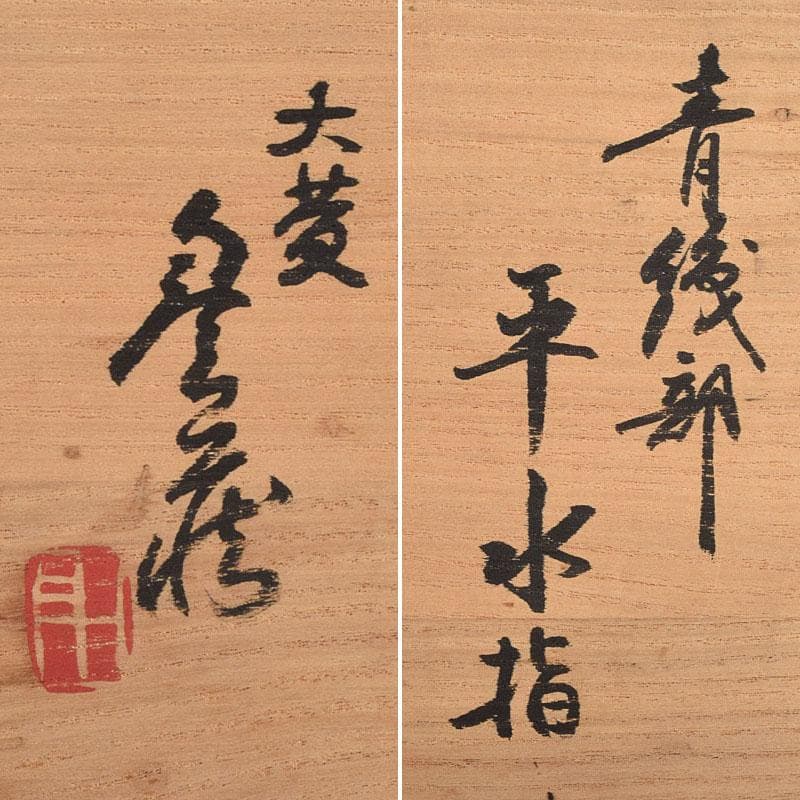 青織部
平水指
大菱